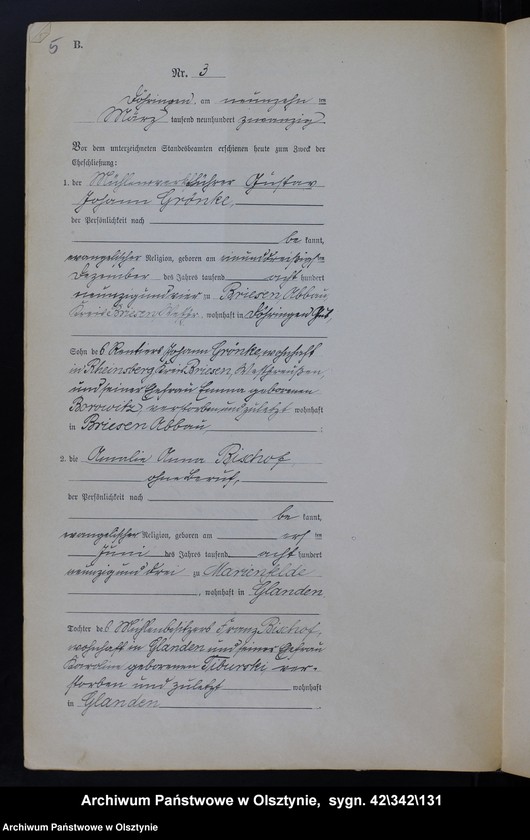 5
B.
Nr. 3
Döhringen, am neunzehn ten
März tausend neunhundert zwanzig.
Vor dem unterzeichneten Standesbeamten erschienen heute zum Zweck der
Eheschließung:
1. der Mühlenwerkführer Gustav
Johann Grönke,
der Persönlichkeit nach
be kannt,
evangelischer Religion, geboren am einunddreißigsten
Dezember des Jahres tausend acht hundert
neunzigundvier zu Briesen Abbau,
Kreis Briesen, wohnhaft in Döhringen Gut,
Sohn des Rentiers Johann Grönke, wohnhaft
in Rheinsberg Kreis Briesen, Westpreußen,
und seiner Ehefrau Emma geborenen
Borowitz, verstorben und zuletzt wohnhaft
in Briesen Abbau.
2. die Amalie Anna Bischof,
ohne Beruf,
der Persönlichkeit nach
be kannt,
evangelischer Religion, geboren am ten
Juni des Jahres tausend acht hundert
neunzigunddrei zu Marienfelde
, wohnhaft in Glanden
Tochter des Mühlenbesitzers Franz Bischof,
wohnhaft in Glanden und seiner Ehefrau
Karoline geborenen Tiburski ver-
storben und zuletzt wohnhaft
in Glanden
Archiwum Państwowe w Olsztynie, sygn. 42\342\131
Archiwum Państwowe w Olsztynie